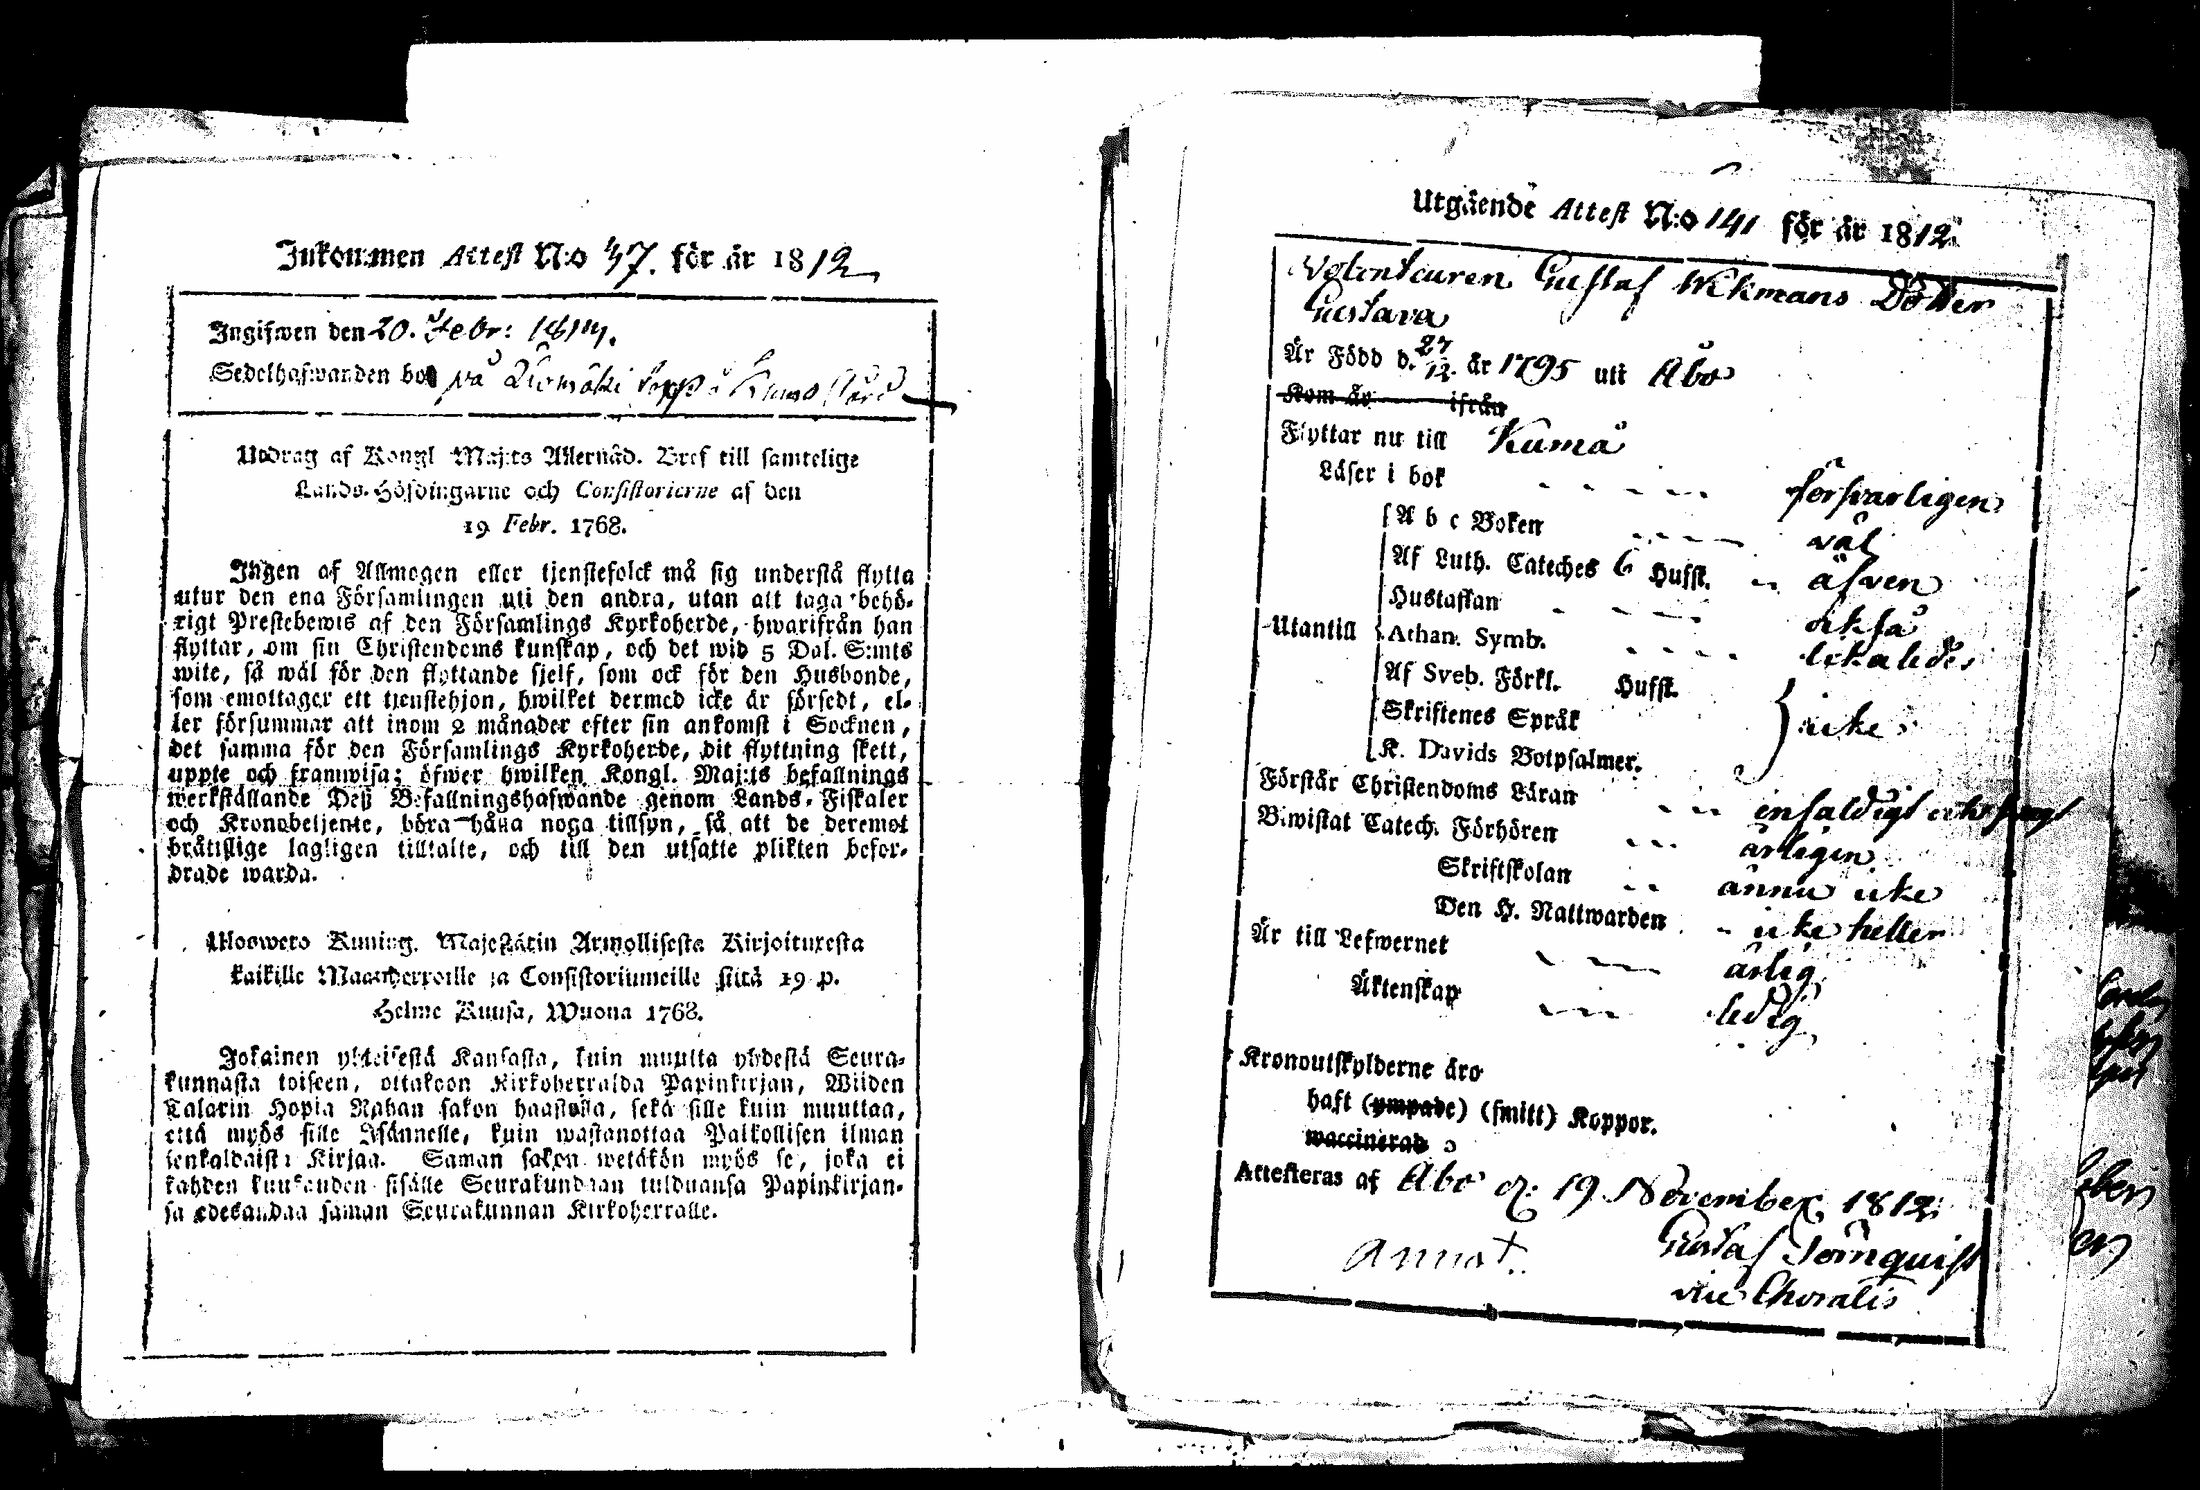 Inkommen Attest N:o 47. för år 1812
Ingifwen den 20. Febr: 1814.
Sedelhafwanden bor på
Utdrag af Kongl Maj:ts Allernåd. Bref till samtelige
Lands-Höfdingarne och Consistorierne af den
19 Febr. 1768.
Ingen af Allmogen eller tjenstefolck må sig understå flytta
utur den ena Församlingen uti den andra, utan att taga behö-
rigt Prestebewis af den Församlings Kyrkoherde, hwarifrån han
flyttar, om sin Christendoms kunskap, och det wid 5 Dal. S:mts
wite, så wäl för den flyttande sjelf, som ock för den Husbonde,
som emottager ett tjenstehjon, hwilket dermed icke är försedt, el-
ler försummar att inom 2 månader efter sin ankomst i Socknen,
det samma för den Församlings Kyrkoherde, dit flyttning skett,
uppte och framwisa; öfwer hwilken Kongl. Maj:ts befallnings
werkställande Deß Befallningshafwande genom Lands-Fiskaler
och Kronobetjente, böra hålla noga tillsyn, så att de deremot
brätislige lagligen tilltalte, och till den utsatte plikten befor-
drade warda.
Uloswero Kuning. Majestätin Armollisesta Kirjoituxesta
kaikille Maanherroille ja Consistoriumeille siitä 19 p.
Helme Kuusa, Wuona 1768.
Jokainen yhteisestä Kansasta, kuin muutta yhdestä Seura-
kunnasta toiseen, ottakoon Kirkoherralda Papinkirjan, Wiiden
Talarin Hopia Rahan sakon haastolla, sekä sille kuin muuttaa,
että myös sille Isännelle, kuin wastanottaa Palkollisen ilman
senkaldaista Kirjaa. Saman sakon wetäkön myös se, joka ei
kahden kuukauden sisälle Seurakundaan tulduansa Papinkirjan-
sa edesandaa saman Seurakunnan Kirkoherralle.
Utgående Attest N:o 141 för år 1812.
Volenteuren Gustaf Wikmans Dotter
Gustava
Är Född d. 27/12 år 1795 uti Åbo
Kom år ifrån
Flyttar nu till Kumå
Läser i bok försvarligen
A b c Boken väl
Af Luth. Cateches 6 Hufst. äfven
Hustaflan också
Utantill Athan. Symb. likaledes
Af Sveb. Förkl. Hufst.
Skriftenes Språk icke
K. Davids Botpsalmer.
Förstår Christendoms Läran enfaldigt
Biwistat Catech. Förhören årligen
Skriftskolan ännu icke
Den H. Nattwarden icke heller
Är till Lefwernet ärlig
Äktenskap ledig
Kronoutskylderne äro
haft (ympade) (smitt) Koppor.
waccinerad
Attesteras af Åbo d: 19 November 1812.
Gustaf Törnquist
Annot.. vice Choralis